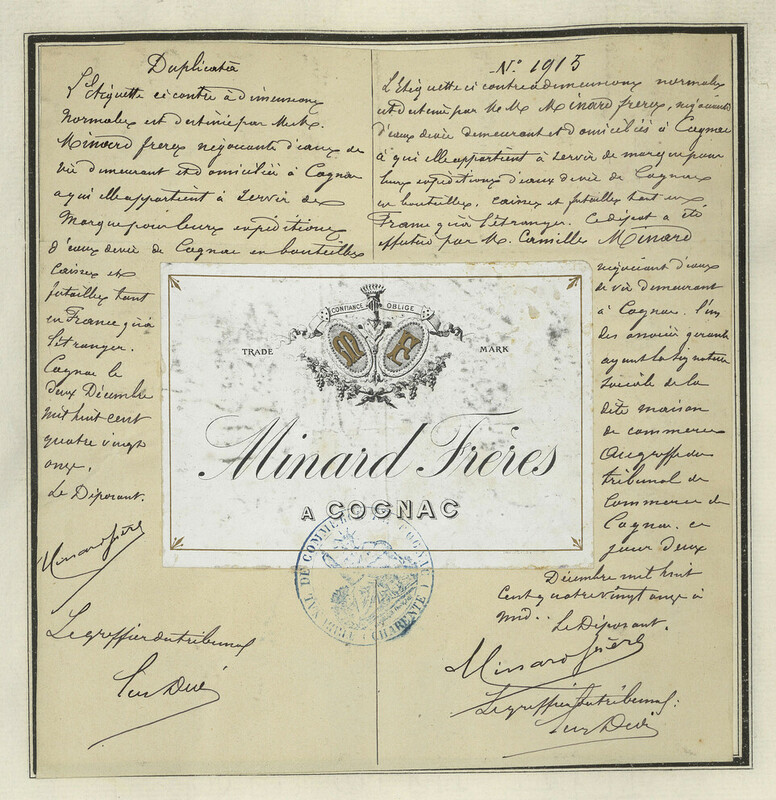 Duplicata
L'Etiquette ci contre à dimensions
normales est destinée par M.M.
Minard frères négociants d'eaux de
vie demeurant et domiciliés à Cognac
a qui elle appartient à servir de
Marque pour leurs expéditions
d'eaux de vie de Cognac en bouteilles
Caisses et
futailles tant
en France qu'à
l'étranger.
Cognac le
deux Décembre
mil huit cent
quatre vingt
onze.
Le Déposant.
Minard frères
Le greffier du tribunal
No. 1915
L'Etiquette ci contre à dimensions normales
est destinée par M.M. Minard frères, négociants
d'eaux de vie demeurant et domiciliés à Cognac
à qui elle appartient à servir de marque pour
leurs expéditions d'eaux de vie de Cognac
en bouteilles, caisses et futailles tant en
France qu'à l'étranger. Ce dépot a été
effectué par M. Camille Minard
négociant d'eaux
de vie demeurant
à Cognac. l'un
des associés gérants
ayant la signature
sociale de la
dite maison
de commerce
Au greffe du
tribunal de
Commerce de
Cognac. ce
jour deux
Décembre mil huit
Cent quatre vingt onze à
midi. Le Déposant.
Minard frères
Le greffier du tribunal:
CONFIANCE OBLIGE
TRADE MARK
M F
Minard Frères
A COGNAC
TRIBUNAL DE COMMERCE DE COGNAC (CHARENTE)